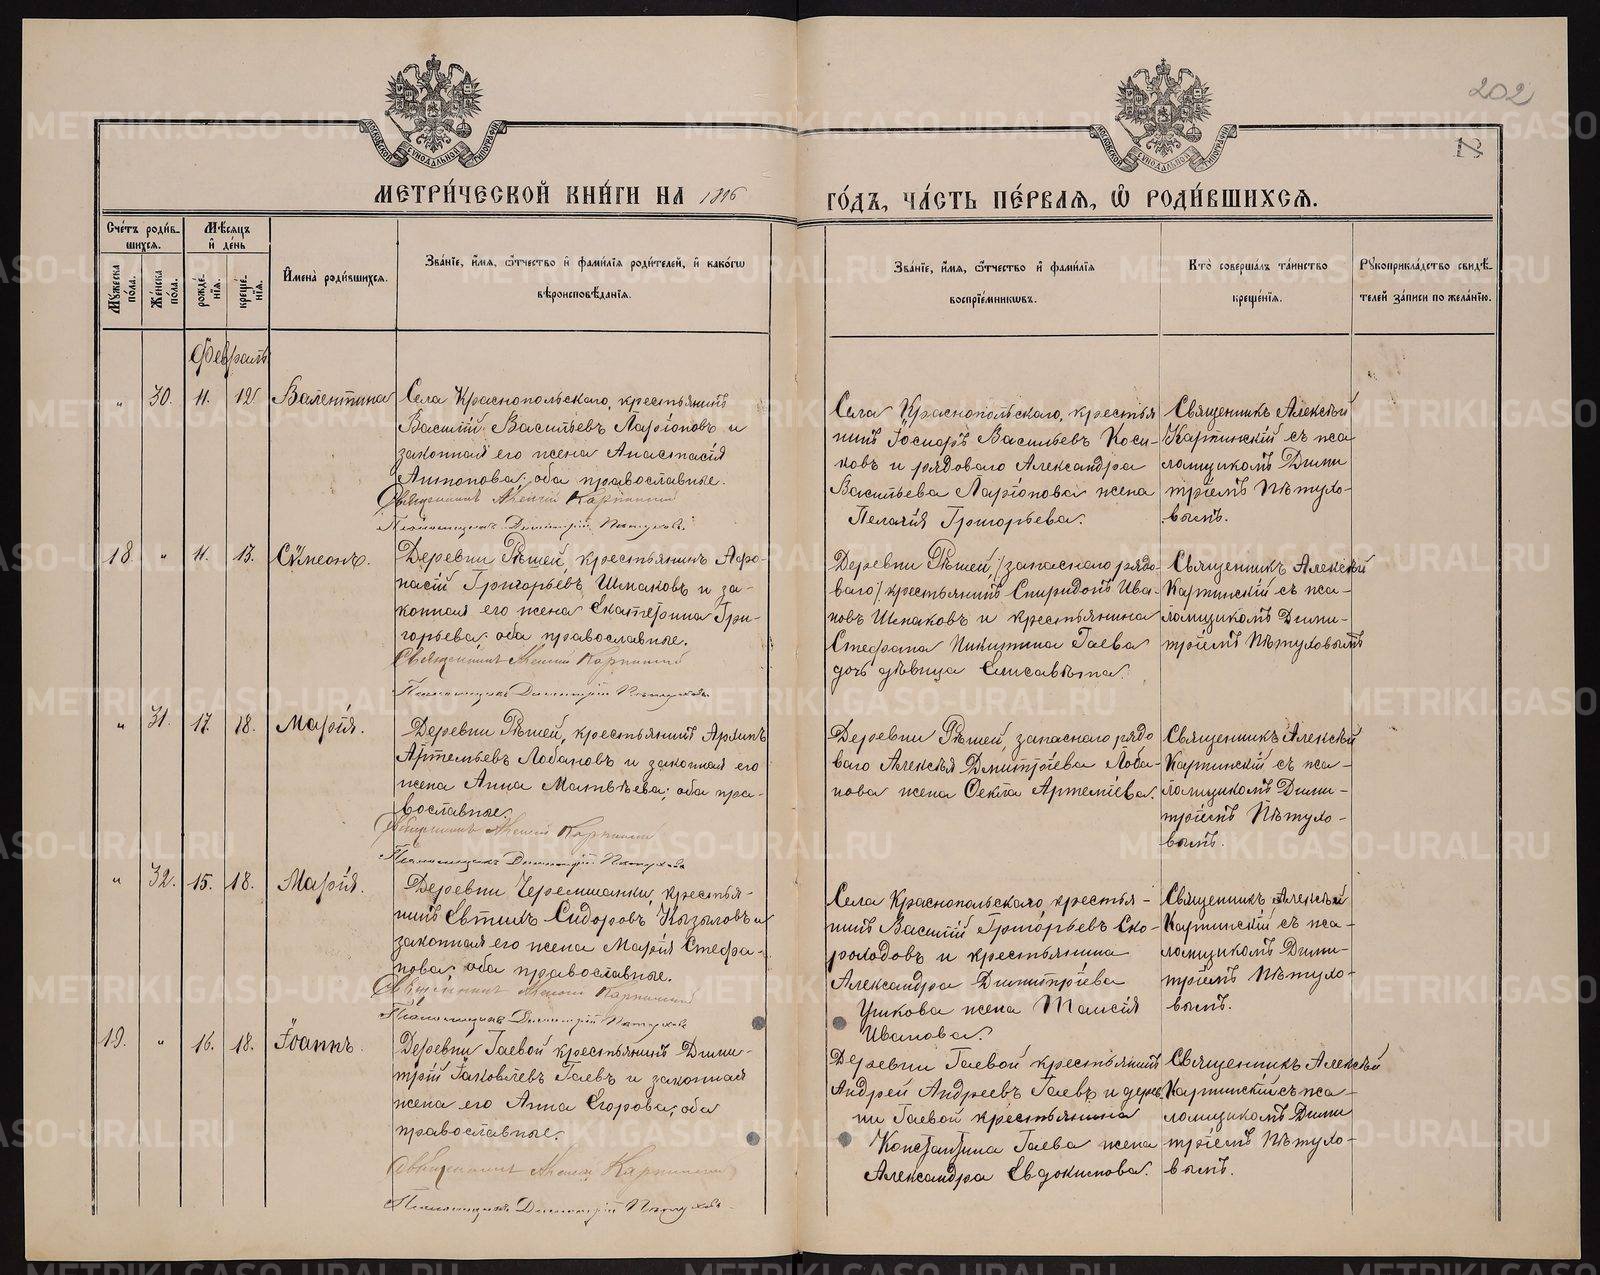 202
МЕТРИ́ЧЕСКОЙ КНИ́ГИ НА 1896
ГО́ДЪ, ЧА́СТЬ ПЕ́РВАѦ, Ѽ РОДИ́ВШИХСѦ.
Сче́тъ роди́в-
шихсѧ.
Мѣ́сяцъ
и҆ де́нь
Мꙋ́жеска
по́ла.
Же́нска
по́ла.
рожде́-
нїѧ.
креще́-
нїѧ.
И҆мена̀ роди́вшихсѧ.
Зва́нїе, и҆́мѧ, ѻ҆́тчество и҆ фамѝлїѧ роди́телей, и҆ како́гѡ
вѣроисповѣ́данїѧ.
Зва́нїе, и҆́мѧ, ѻ҆́тчество и҆ фамѝлїѧ
воспрїе́мникѡвъ.
Кто̀ соверша́лъ та́инство
креще́нїѧ.
Рꙋкоприкла́дство свидѣ́-
телей за́писи по жела́нїю.
Февраль
" 30. 11. 12. Валентина
Села Краснопольскаго, крестьянинъ
Василій Васильевъ Ларіоновъ и
законная его жена Анастасія
Антонова; оба православные.
Священникъ Алексій Карпинскій
Псаломщикъ Димитрій Пѣтуховъ.
Села Краснопольскаго, крестья
нинъ Госифъ Васильевъ Коси-
ковъ и рядоваго Александра
Васильева Ларіонова жена
Пелагія Григорьева.
Священникъ Алексѣй
Карпинскій съ пса
ломщикомъ Дими
тріемъ Пѣтухо-
вымъ.
18. " 11. 13. Сѵмеонъ.
Деревни Рѣшей, крестьянинъ Афо-
насій Григорьевъ Шпаковъ и за-
конная его жена Екатерина Гри-
горьева; оба православные.
Священникъ Алексій Карпинскій
Псаломщикъ Димитрій Пѣтуховъ.
Деревни Рѣшей, /запаснаго рядо-
ваго/ крестьянинъ Спиридонъ Ива-
новъ Шпаковъ и крестьянина
Стефана Никитина Гаева
дочь дѣвица Елисавѣта.
Священникъ Алексѣй
Карпинскій съ пса-
ломщикомъ Дими-
тріемъ Пѣтуховымъ
" 31. 17. 18. Марія.
Деревни Рѣшей, крестьянинъ
Артемьевъ Лобановъ и законная его
жена Анна Матвѣева; оба пра-
вославные.
Священникъ Алексій Карпинскій
Псаломщикъ Димитрій Пѣтуховъ
Деревни Рѣшей, запаснаго рядо
ваго Алексѣя Дмитріева Лоба-
нова жена Фекла Артеміева.
Священникъ Алексѣй
Карпинскій съ пса-
ломщикомъ Дими-
тріемъ Пѣтухо-
вымъ.
" 32. 15. 18. Марія.
Деревни Черемшанки, крестья-
нинъ Евтихъ Сидоровъ Кызыловъ и
законная его жена Марія Стефа-
нова; оба православные.
Священникъ Алексій Карпинскій
Псаломщикъ Димитрій Пѣтуховъ
Села Краснопольскаго, крестья-
нинъ Василій Григорьевъ Ско-
роходовъ и крестьянина
Александра Димитріева
Ушкова жена Таисія
Иванова.
Священникъ Алексѣй
Карпинскій съ пса-
ломщикомъ Дими-
тріемъ Пѣтухо-
вымъ.
19. " 16. 18. Іоаннъ.
Деревни Гаевой крестьянинъ Дими-
трій Іаковлевъ Гаевъ и законная
жена его Анна Егорова; оба
православные.
Священникъ Алексій Карпинскій
Псаломщикъ Димитрій Пѣтуховъ.
Деревни Гаевой крестьянинъ
Андрей Андреевъ Гаевъ и дерев-
ни Гаевой крестьянина
Константина Гаева жена
Александра Евдокимова.
Священникъ Алексѣй
Карпинскій съ пса-
ломщикомъ Дими
тріемъ Пѣтухо-
вымъ.